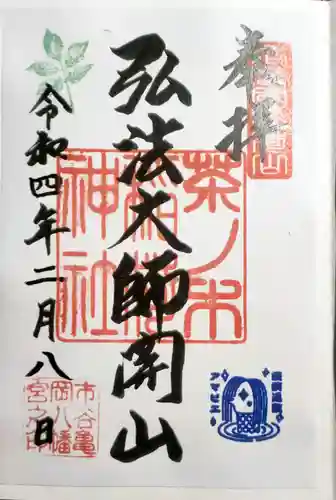 奉拝
弘法大師開山
令和四年二月八日
茶ノ木
稲荷
神社
市谷亀
岡八幡
宮之印
アマビエ